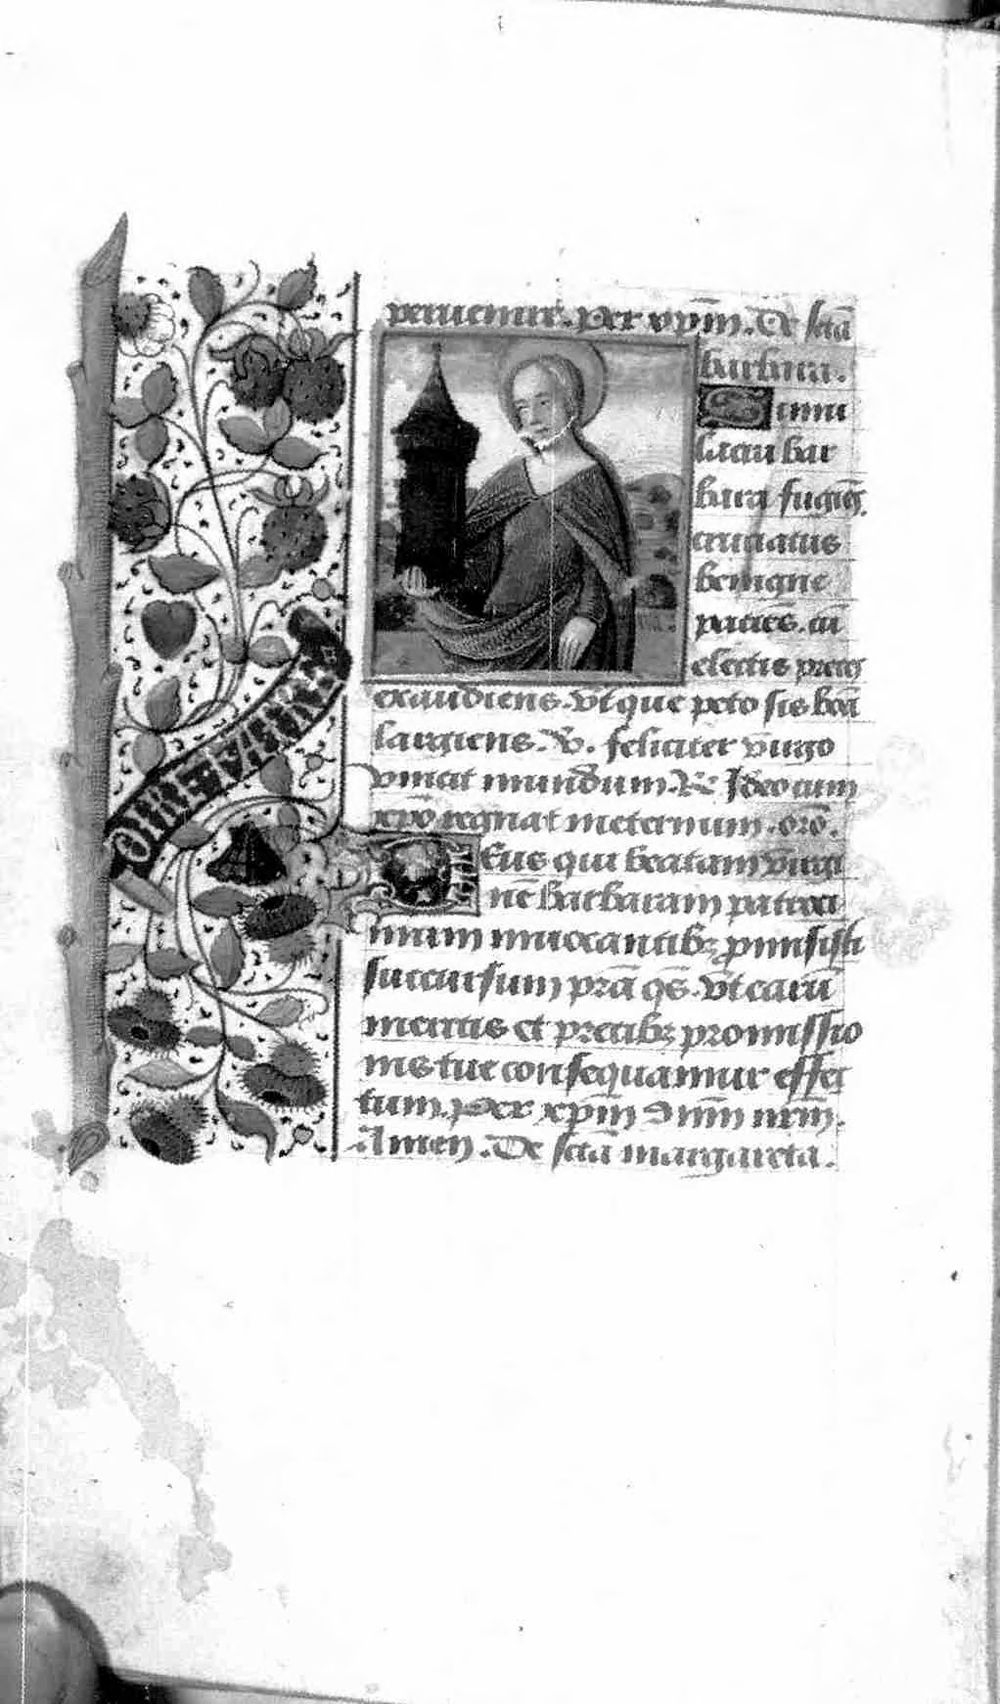 veniemur. Per xp̄m̄. De sctā
barbara.
Simu
lacra bar
bara fugiēs
cruciatus
benigne
patiēs. cū
electis preces
exaudiens. Ut que peto sis boā
largiens. V̄. feliciter virgo
vincit mundum. R̄ Ideo cum
xp̄o regnat in eternum. orō.
DEus qui beatam virgi
nē barbaram patroci
nium invocantibꝫ promisisti
succursum prā q̄s. Ut earū
meritis et precibꝫ promissio
nis tue consequamur effec
tum. Per xp̄m̄ dn̄m̄ nr̄m̄.
Amen. De sctā margareta.